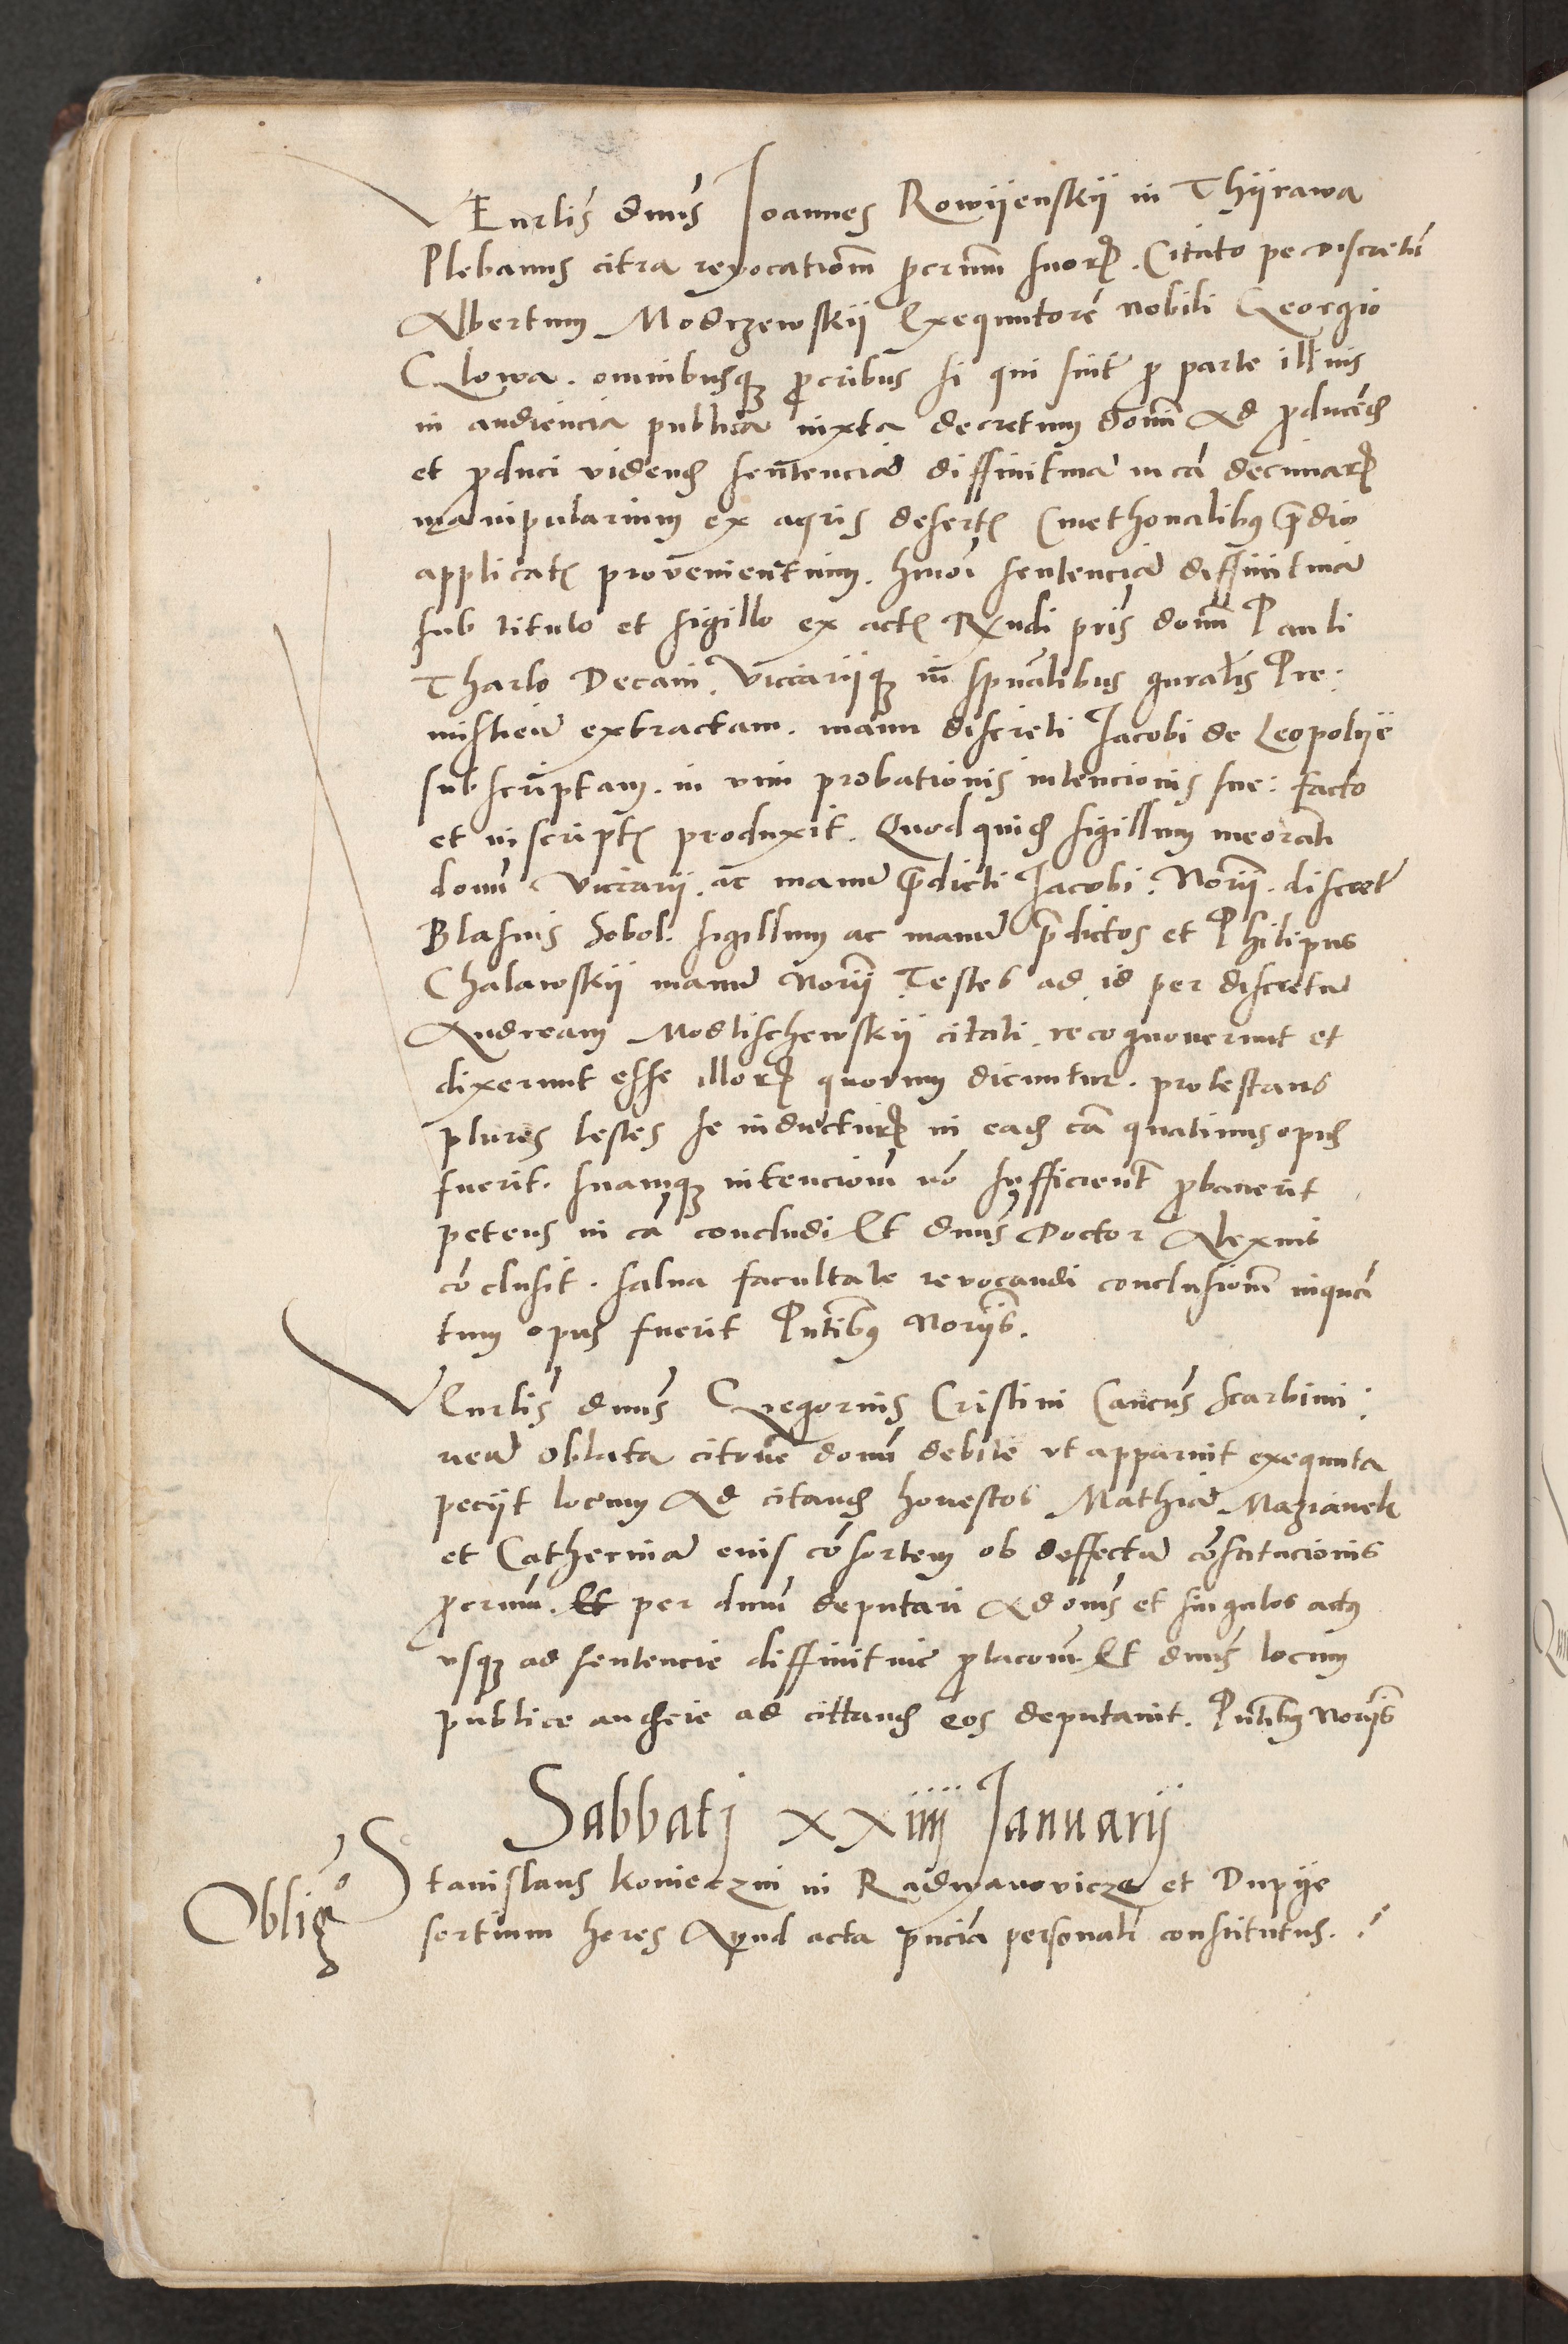 Venrlis dnus Joannes Rowÿenskÿ in Thÿrawa
Plebanus citra reuocationem procrum suorum. Citato per discretum
Albertum Modrzewskÿ Exequutorem nobili Georgio
Glowa. omnibusque procribus si qui sint pro parte illius
in audiencia publica iuxta decretum domini Ad producend
et produci videnđ sentenciam diffinitiuam in ca decimarum
manipularium ex agris desertis Cmethonalibus predio
applicatis provenientium. hmoi sentenciam diffinitiuam
sub titulo et sigillo ex actis Rndi pris domini Pauli
Tharlo Decani. Vicariique in spualibus gnralis Pre:
misliensis extractam. manu discreti Jacobi de Leopolÿe
subscriptam. in vim probationis intencionis sue: facto
et in scriptis produxit. Quod quidem sigillum meorati
domini Vicarii. ac manum predicti Jacobi. Norii. discreti
Blasius Sobol. sigillum ac manum predictos et Philipus
Chalawskÿ manum Norii Testes ad id per discretum
Andream Modlischewskÿ citati. recognouerunt et
dixerunt esse illorum quorum dicuntur. protestans
plures testes se inducturum in eadem ca quatinus opus
fuerit. suamque intencionem non sufficienter probauerit
petens in ca concludi Et dnus Doctor Alexius
conclusit. salua facultate reuocandi conclusionem inquan
tum opus fuerit Pntibus Noriis.
Venrlis dnus Gregorius Cristini Cancus scarbimi:
riensis oblata citone domini debite vt apparuit exequuta
peciit locum Ad citandum honestos Mathiam Mazianek
et Catherinam eius consortem ob deffectum constitucionis
procrum. Et per dnum deputari Ad omnes et singulos actus
vsque ad sentencie diffinitiue prolacionem Et dnus locum
publice audiencie ad cittandum eos deputauit. Pntibus Noriis
Sabbatj xxiiij Januarij
Obligo
Stanislaus Konieczni in Radwanovicze et Dupÿe
sortium heres Apud acta pncia personaliter constitutus.